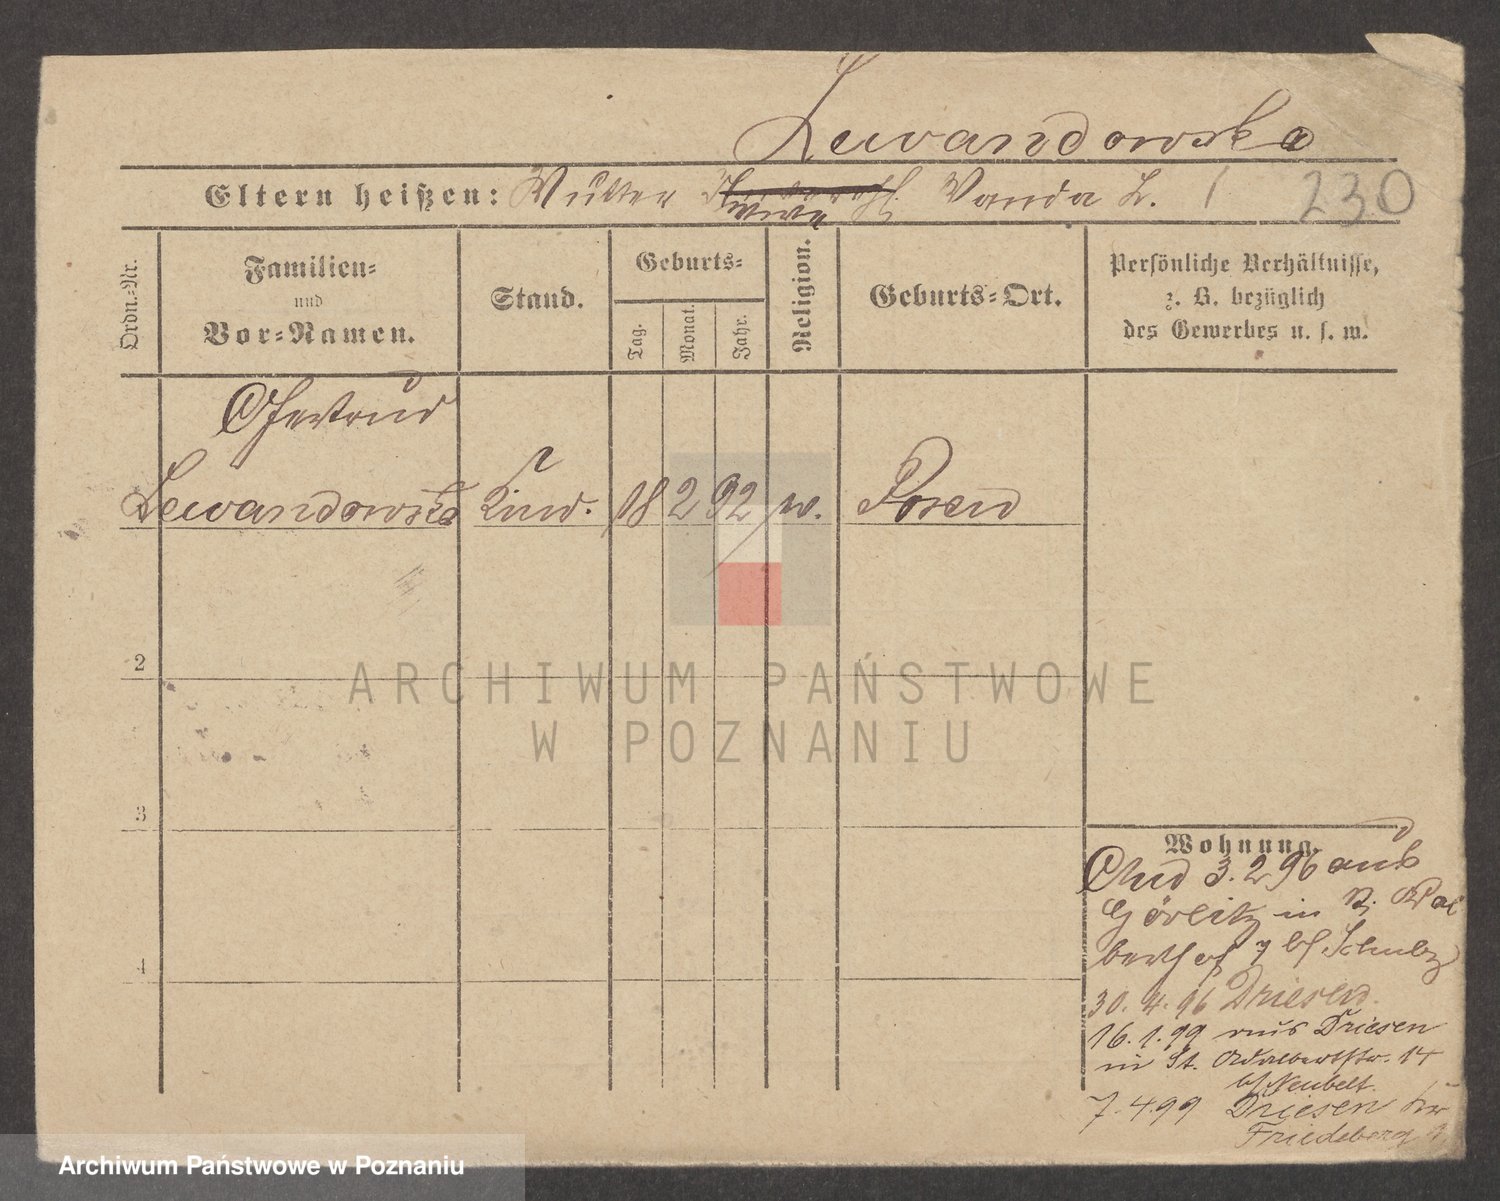 Lewandowska
Eltern heißen: Mutter Wanda L. 230
Ordn.-Nr.
Familien- und Vor-Namen.
Stand.
Geburts-
Tag.
Monat.
Jahr.
Religion.
Geburts-Ort.
Persönliche Verhältnisse,
z. B. bezüglich
des Gewerbes u. s. w.
Gertrud
Lewandowska Kind. 18 2 92 Posen
2
3
4
ARCHIWUM PAŃSTWOWE
W POZNANIU
Wohnung.
3.2.96 aus
Görlitz in
berthof 7 b/ Schulz
30.4.96 Driesen.
16.1.99 aus Driesen
in St. Adalbertstr. 14
b/ Neubelt.
7.4.99 Driesen Kr
Friedeberg
Archiwum Państwowe w Poznaniu